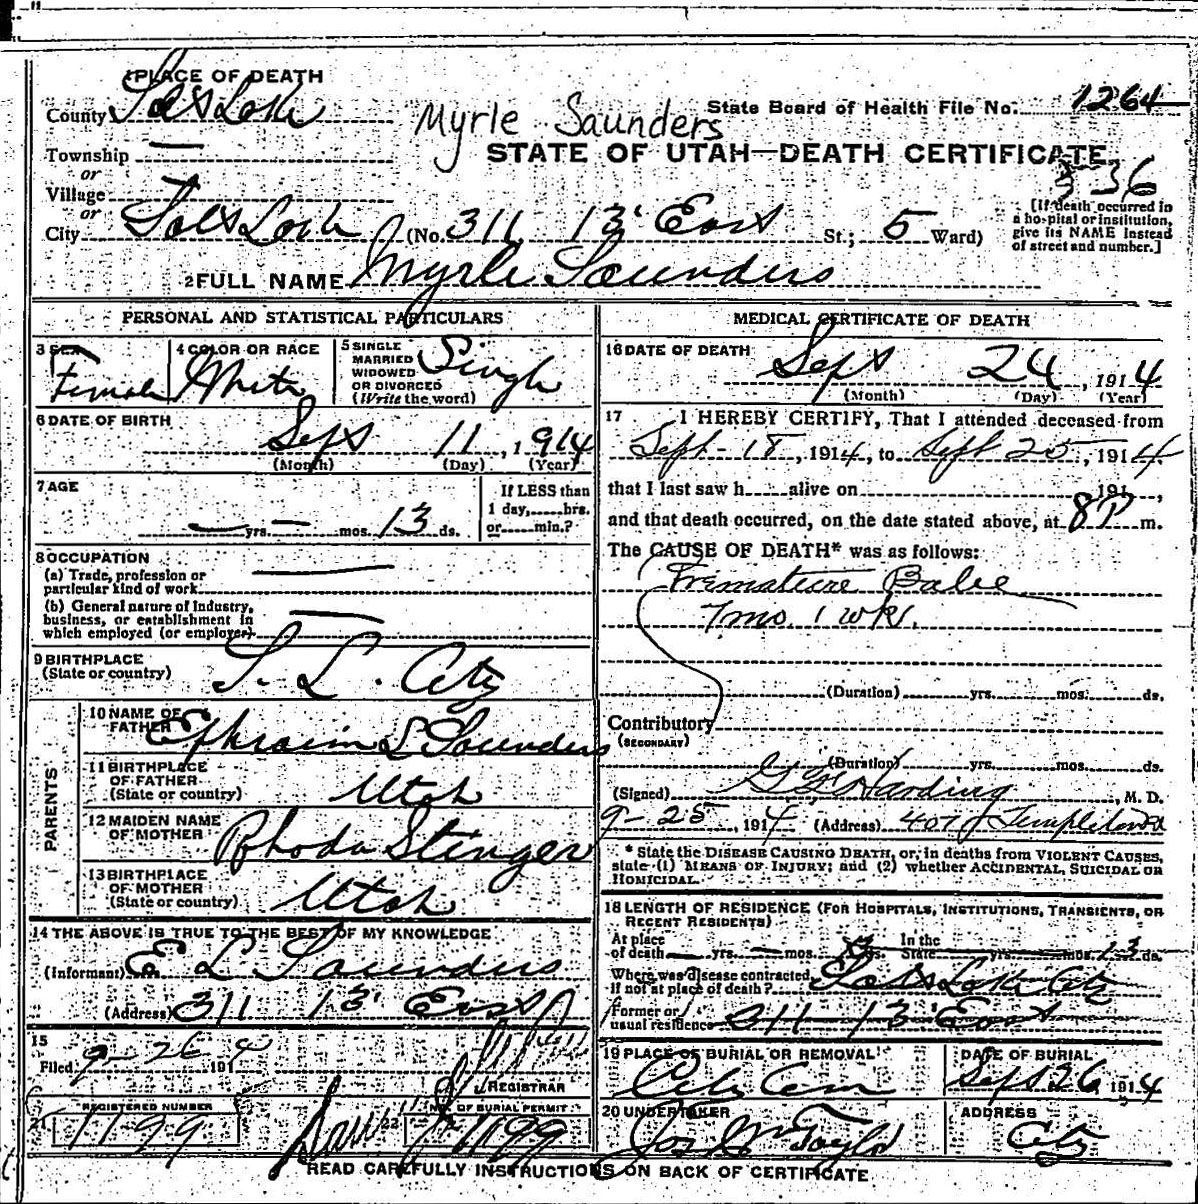 1 PLACE OF DEATH
County Salt Lake
Myrle Saunders
State Board of Health File No. 1264
STATE OF UTAH—DEATH CERTIFICATE
Township —
or
Village
or
City Salt Lake (No. 311 13' East St.; 5 Ward)
336
[If death occurred in
a hospital or institution,
give its NAME instead
of street and number.]
2 FULL NAME Myrle Saunders
PERSONAL AND STATISTICAL PARTICULARS
3 SEX Female
4 COLOR OR RACE White
5 SINGLE
MARRIED
WIDOWED
OR DIVORCED
(Write the word)
Single
6 DATE OF BIRTH
Sept 11, 1914
(Month) (Day) (Year)
7 AGE
— yrs. — mos. 13 ds.
If LESS than
1 day, hrs.
or min.?
8 OCCUPATION
(a) Trade, profession or
particular kind of work
(b) General nature of Industry,
business, or establishment in
which employed (or employer)
9 BIRTHPLACE
(State or country)
S. L. City
PARENTS
10 NAME OF
FATHER
Ephraim L Saunders
11 BIRTHPLACE
OF FATHER
(State or country)
Utah
12 MAIDEN NAME
OF MOTHER
Rhoda Stinger
13 BIRTHPLACE
OF MOTHER
(State or country)
Utah
14 THE ABOVE IS TRUE TO THE BEST OF MY KNOWLEDGE
(Informant) E L Saunders
(Address) 311 13' East
15
Filed 9-26 1914
REGISTRAR
21 REGISTERED NUMBER
1199
22 NO. OF BURIAL PERMIT
1199
MEDICAL CERTIFICATE OF DEATH
16 DATE OF DEATH
Sept 24, 1914
(Month) (Day) (Year)
17 I HEREBY CERTIFY, That I attended deceased from
Sept-18, 1914, to Sept 25, 1914,
that I last saw h alive on 191 ,
and that death occurred, on the date stated above, at 8 P m.
The CAUSE OF DEATH* was as follows:
Premature Babe
7 mo. 1 wk.
(Duration) yrs. mos. ds.
Contributory
(SECONDARY)
(Duration) yrs. mos. ds.
(Signed) G F Harding, M. D.
9-25, 1914 (Address) 407 Templeton
* State the DISEASE CAUSING DEATH, or, in deaths from VIOLENT CAUSES,
state (1) MEANS OF INJURY; and (2) whether ACCIDENTAL, SUICIDAL OR
HOMICIDAL.
18 LENGTH OF RESIDENCE (FOR HOSPITALS, INSTITUTIONS, TRANSIENTS, OR
RECENT RESIDENTS)
At place
of death — yrs. — mos. ds. In the
State yrs. mos. 13 ds.
Where was disease contracted,
if not at place of death? Salt Lake City
Former or
usual residence 311 13' East
19 PLACE OF BURIAL OR REMOVAL
City Cem
DATE OF BURIAL
Sept 26 1914
20 UNDERTAKER
Jos Wm Taylor
ADDRESS
City
READ CAREFULLY INSTRUCTIONS ON BACK OF CERTIFICATE